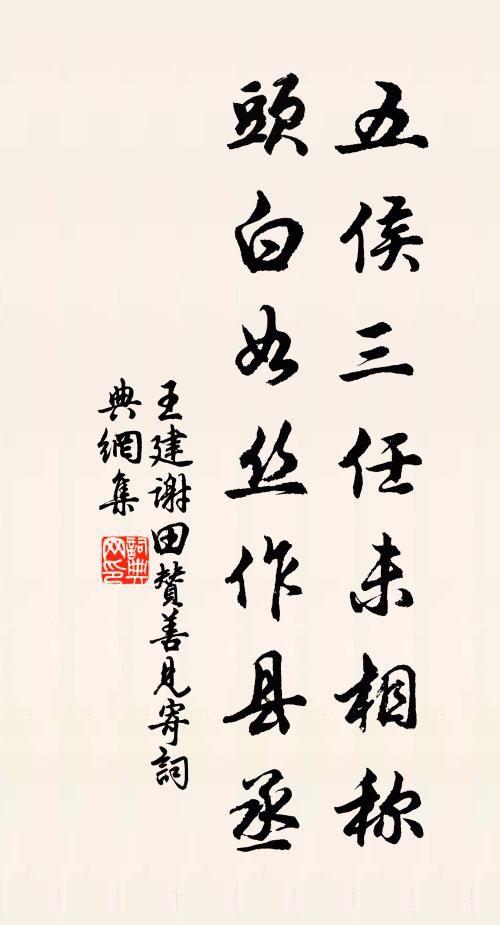 五侯三任未相称
頭白如丝作县丞
王建谢田赞善见寄詞
典網集
詞典
网印